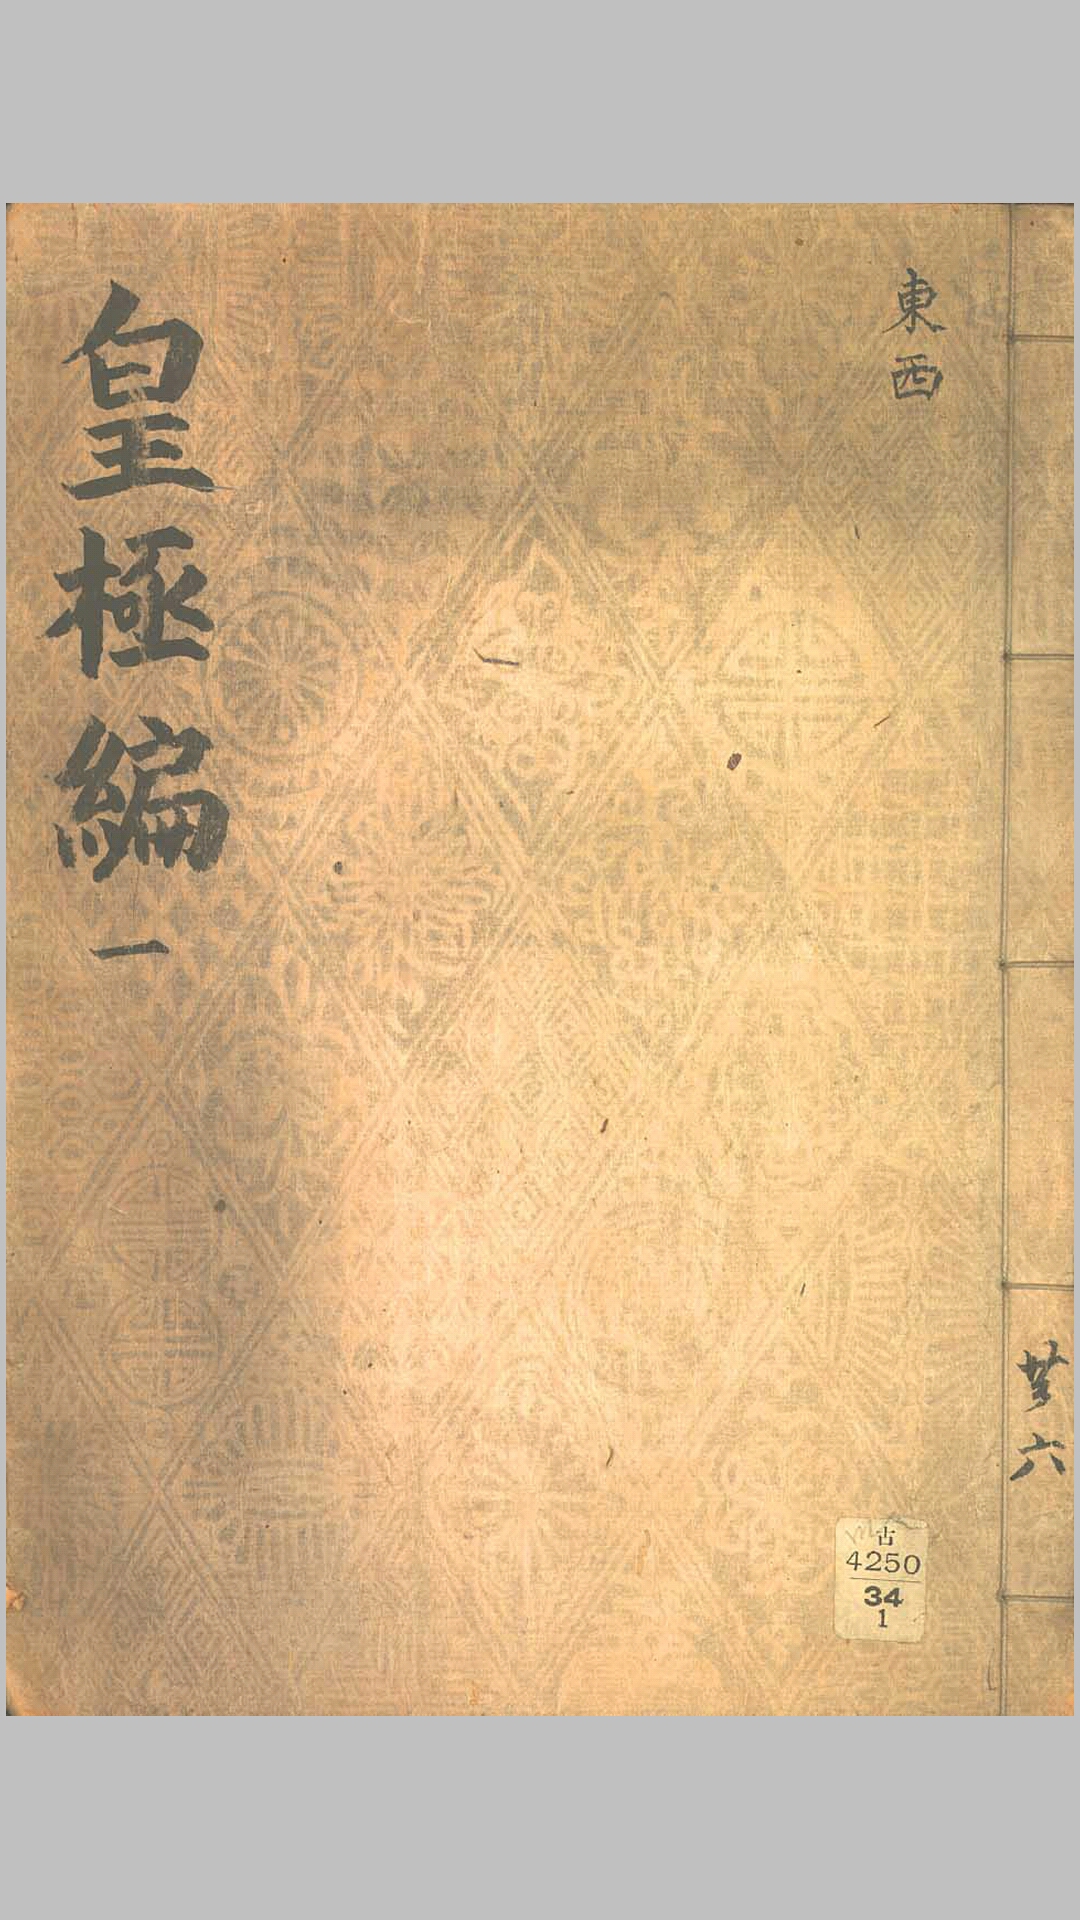 東西
皇極編 一
共六
古
4250
34
1